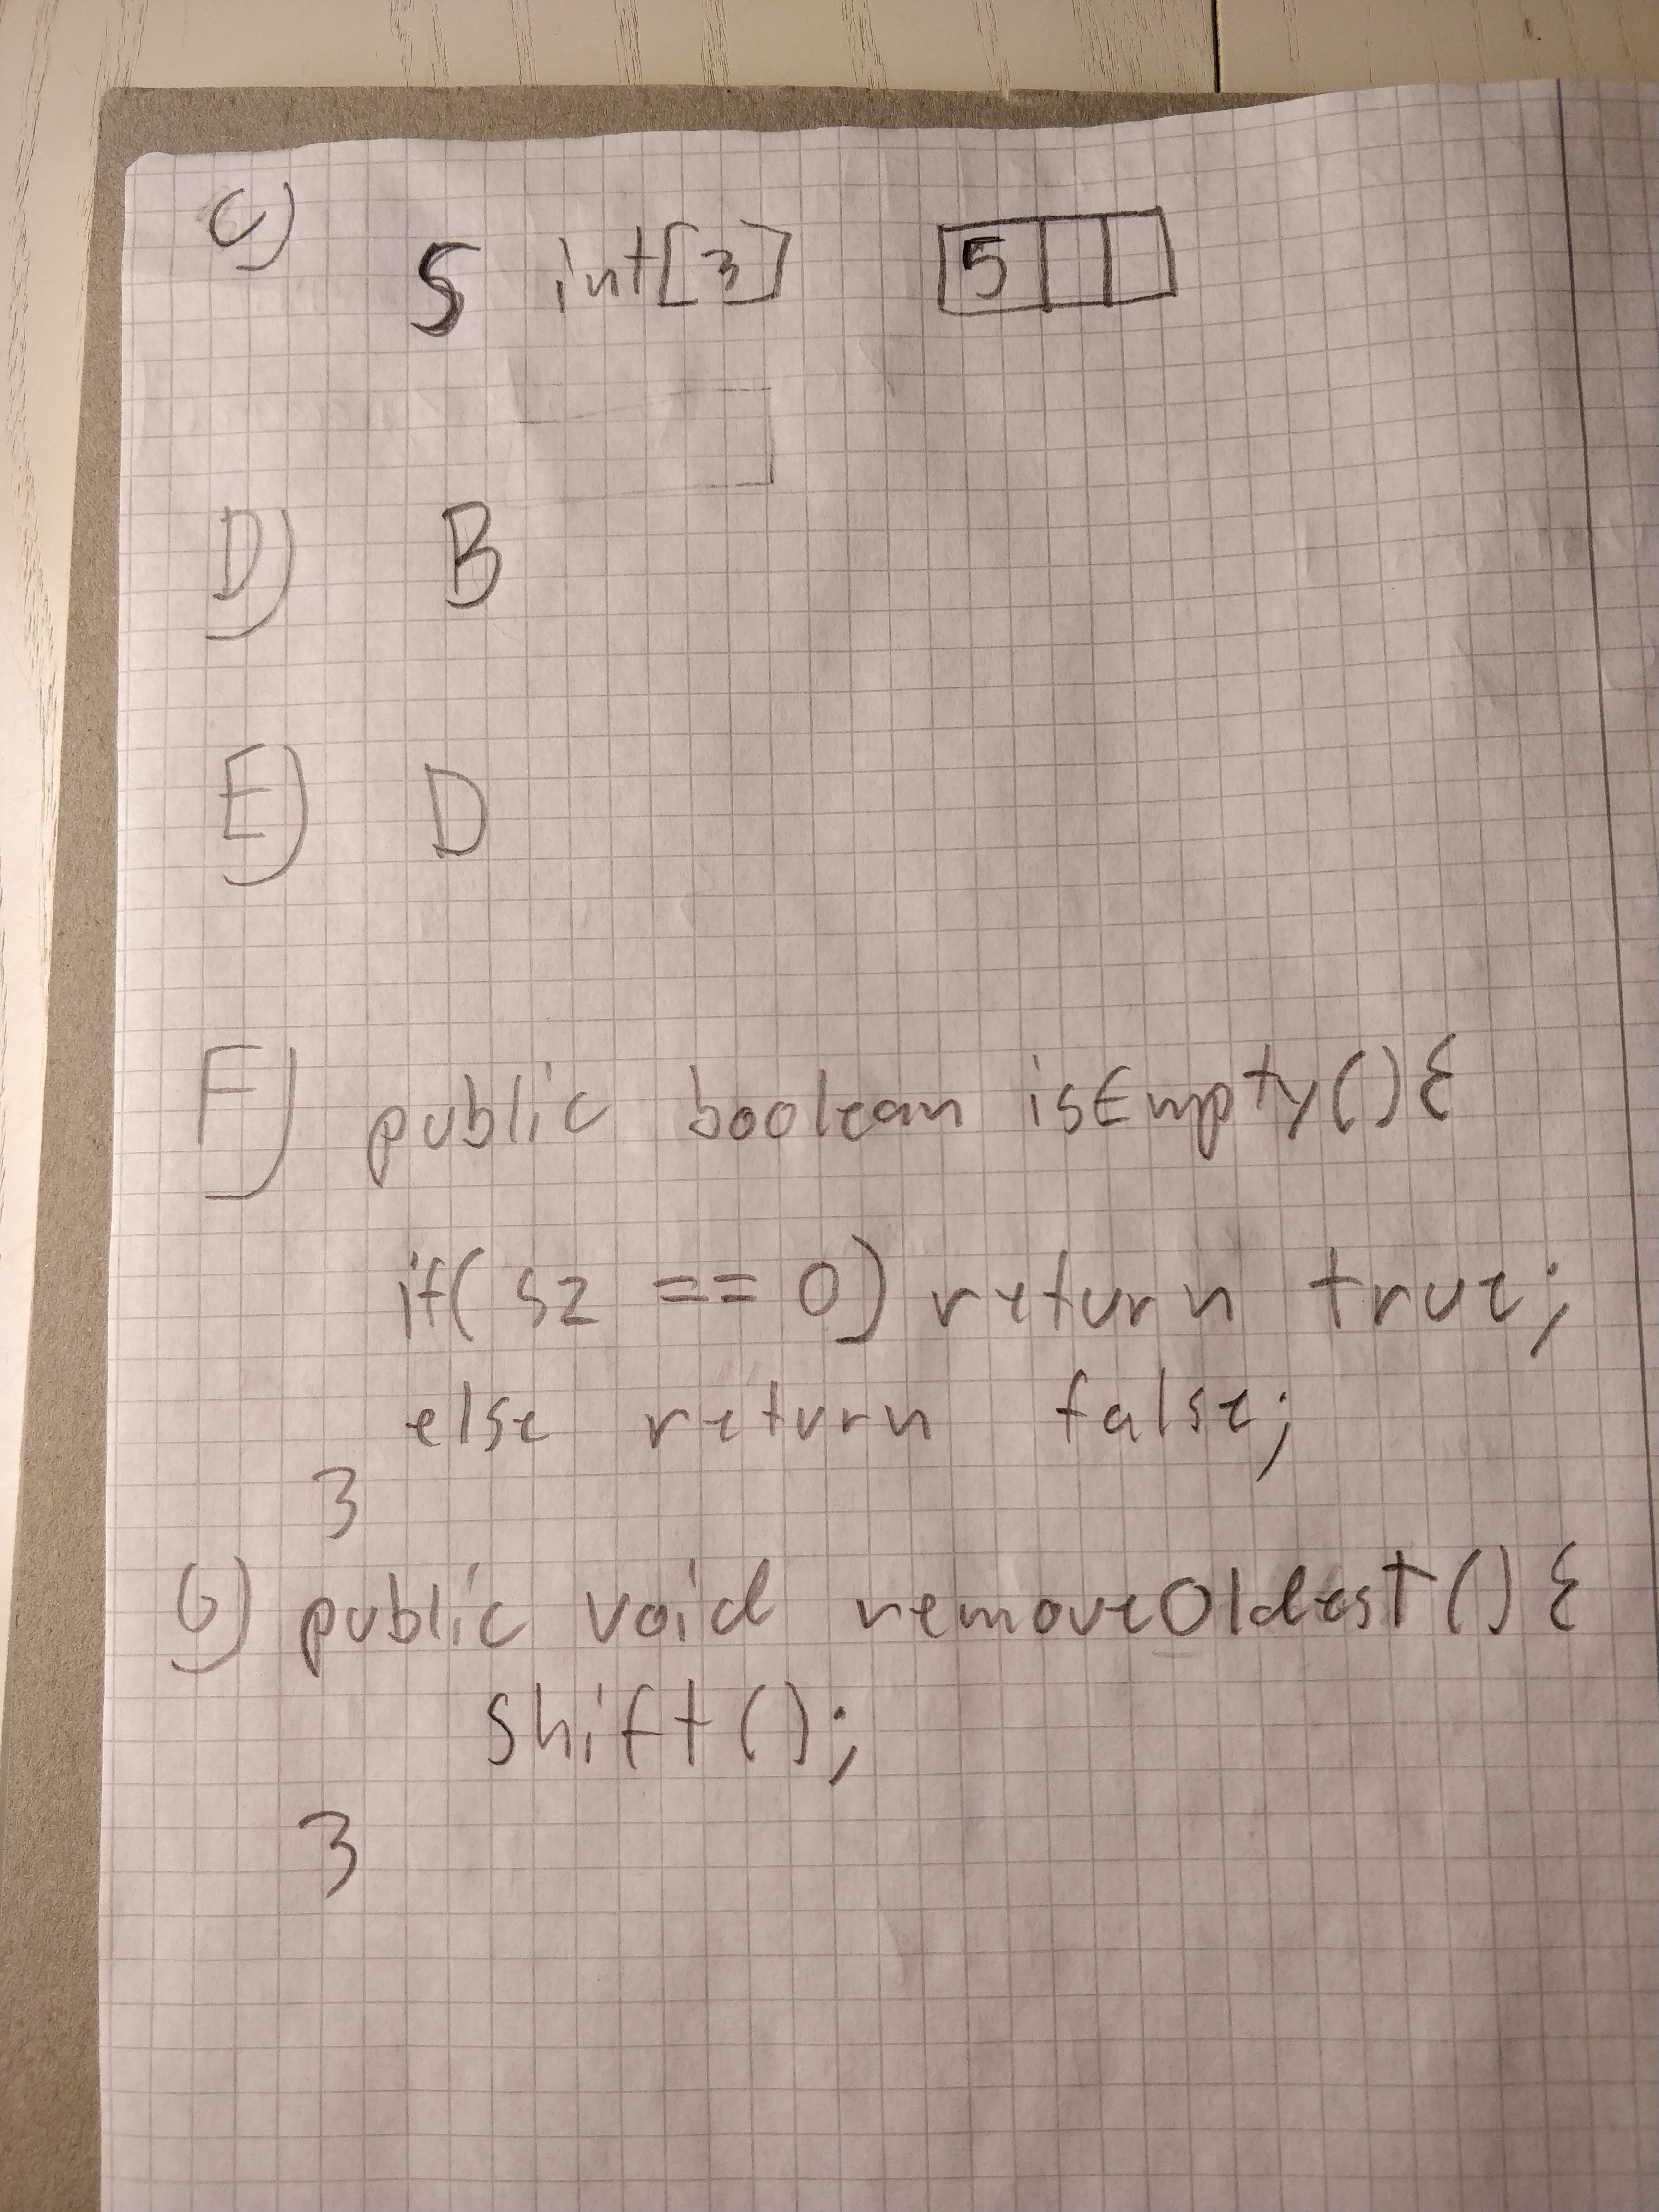 C) 5 int[3] 5
D) B
E) D
F) public boolean isEmpty(){
if( sz == 0) return true;
else return false;
}
G) public void removeOldest(){
shift();
}